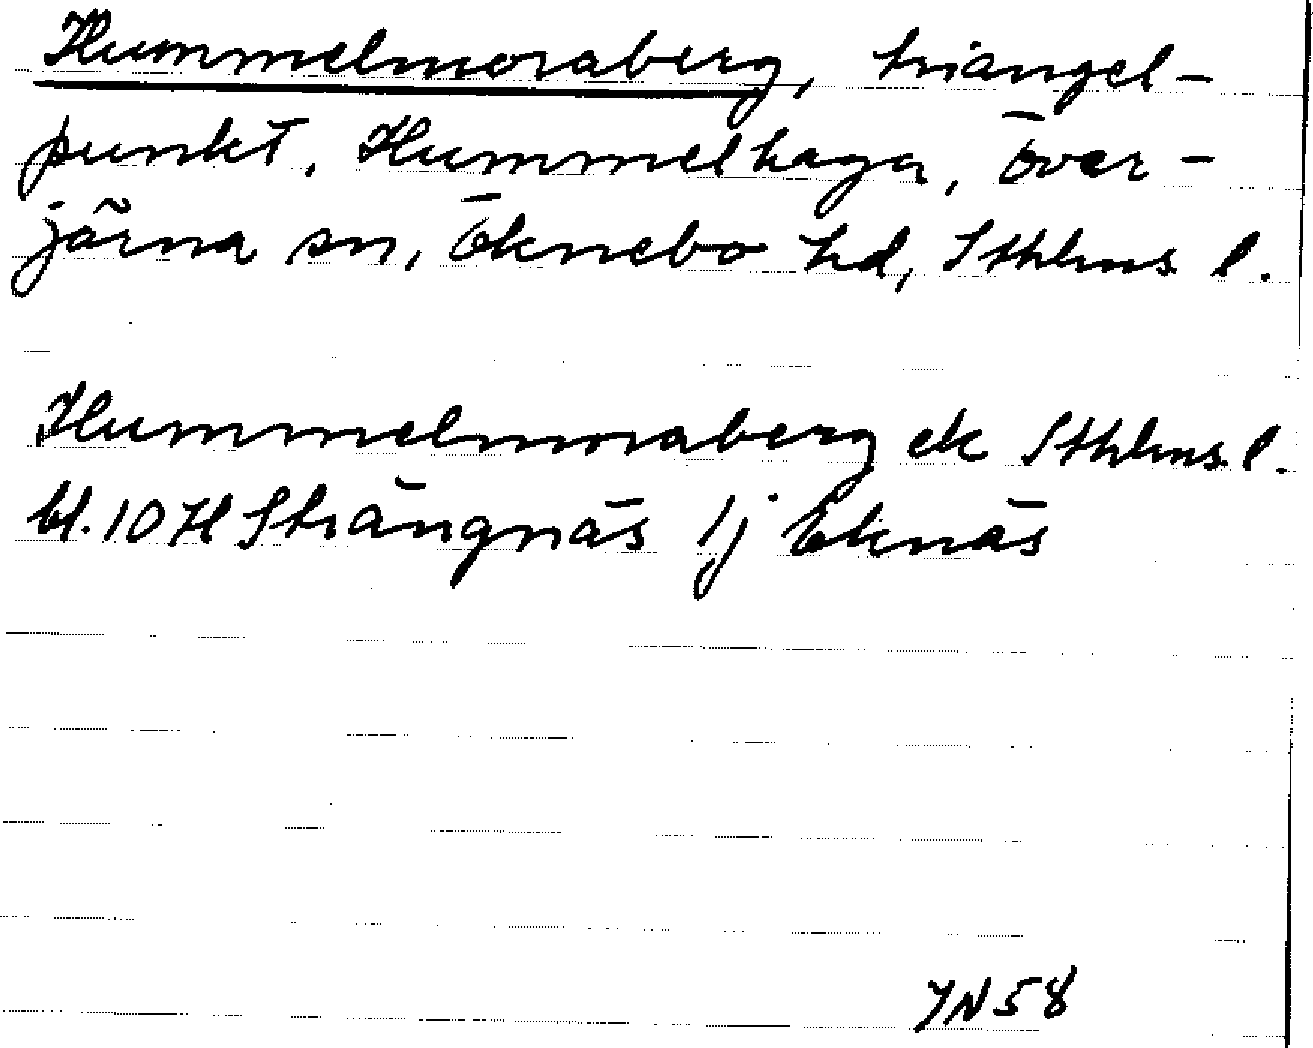 Hummelmoraberg, triangel-
punkt, Hummelhaga, Över-
järna sn, Öknebo hd, Sthlms l.
Hummelmoraberg ek Sthlms l.
bl. 10 H Strängnäs 1j Eknäs
JN58